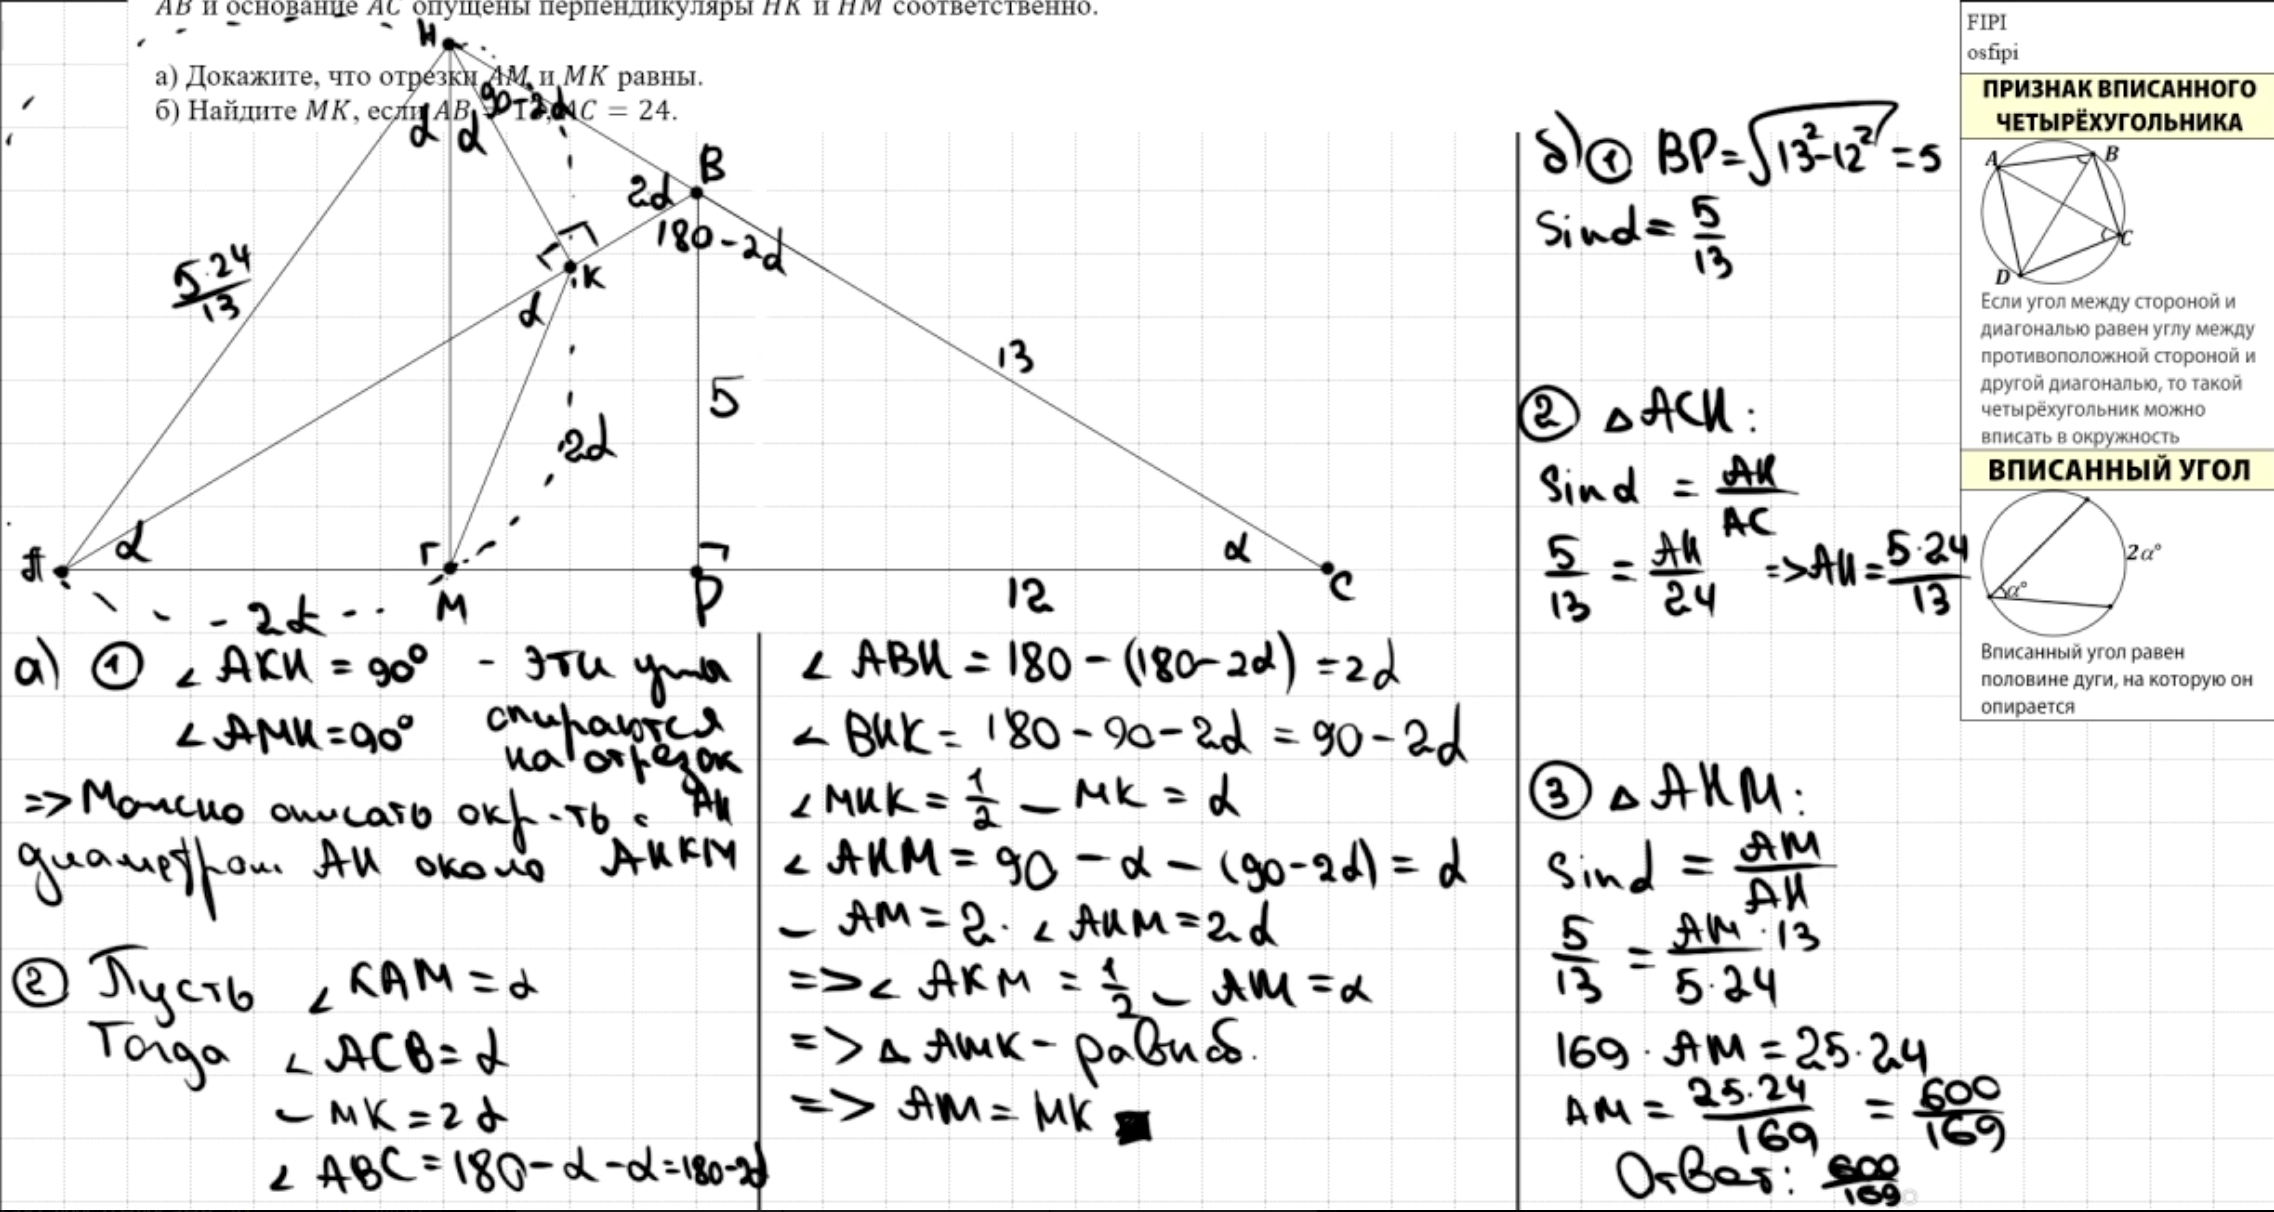 AB и основание AC опущены перпендикуляры HK и HM соответственно.
а) Докажите, что отрезки AM и MK равны.
б) Найдите MK, если AB = 13, AC = 24.
H
α α 90-2α
B
2α
180-2α
5·24/13
K
α
13
5
2α
A
α
α
M
P
12
C
2α
а) ① ∠AKH = 90° - эти углы
∠AMH = 90° опираются
на отрезок
AH
=> Можно описать окр-ть с
диаметром AH около AHKM
② Пусть ∠KAM = α
Тогда ∠ACB = α
◡ MK = 2α
∠ABC = 180-α-α = 180-2α
∠ABH = 180-(180-2α) = 2α
∠BHK = 180-90-2α = 90-2α
∠MHK = 1/2 ◡ MK = α
∠AHM = 90-α-(90-2α) = α
◡ AM = 2·∠AHM = 2α
=> ∠AKM = 1/2 ◡ AM = α
=> △AMK - равноб.
=> AM = MK ■
б) ① BP = √13²-12² = 5
Sinα = 5/13
② △ACH:
Sinα = AH/AC
5/13 = AH/24 => AH = 5·24/13
③ △AHM:
Sinα = AM/AH
5/13 = AM·13/5·24
169·AM = 25·24
AM = 25·24/169 = 600/169
Ответ: 600/169
FIPI
osfipi
ПРИЗНАК ВПИСАННОГО
ЧЕТЫРЁХУГОЛЬНИКА
A
B
C
D
Если угол между стороной и
диагональю равен углу между
противоположной стороной и
другой диагональю, то такой
четырёхугольник можно
вписать в окружность
ВПИСАННЫЙ УГОЛ
2α°
α°
Вписанный угол равен
половине дуги, на которую он
опирается